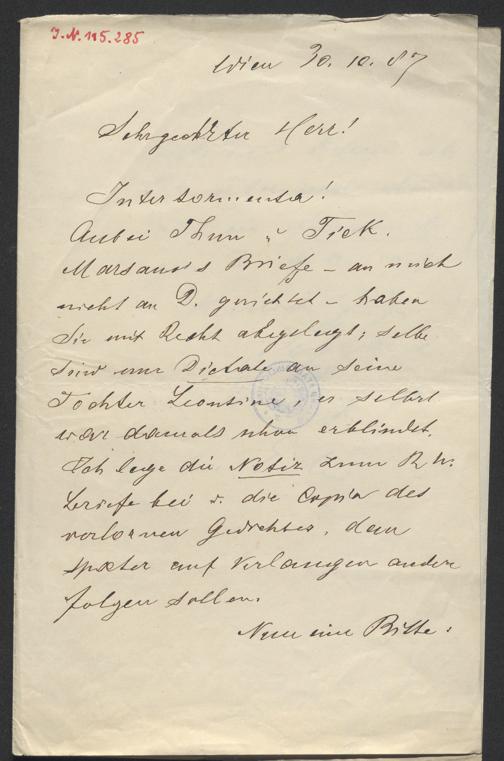 I.N. 115.285
Wien 30. 10. 87
Sehrgeehrter Herr!
Inter tormenta!
Anbei Thun u Tieck.
Marsano's Briefe – an mich
nicht an D. gerichtet – haben
Sie mit Recht abgelegt; selbe
sind nur Dictate an seine
Tochter Leontine, er selbst
war damals schon erblindet.
Ich lege die Notiz zum R. W.
Briefe bei u. die Copia des
verlornen Gedichtes, dem
später auf Verlangen andere
folgen sollen.
Nun eine Bitte: